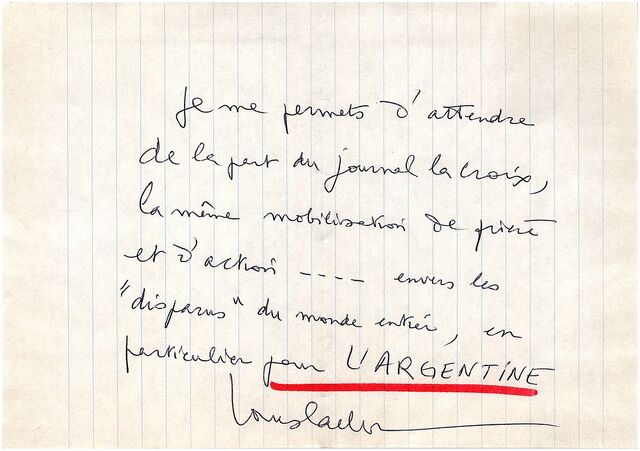 Je me permets d'attendre
de la part du journal la Croix,
la même mobilisation de prière
et d'action ---- envers les
"disparus" du monde entier, en
particulier pour L'ARGENTINE